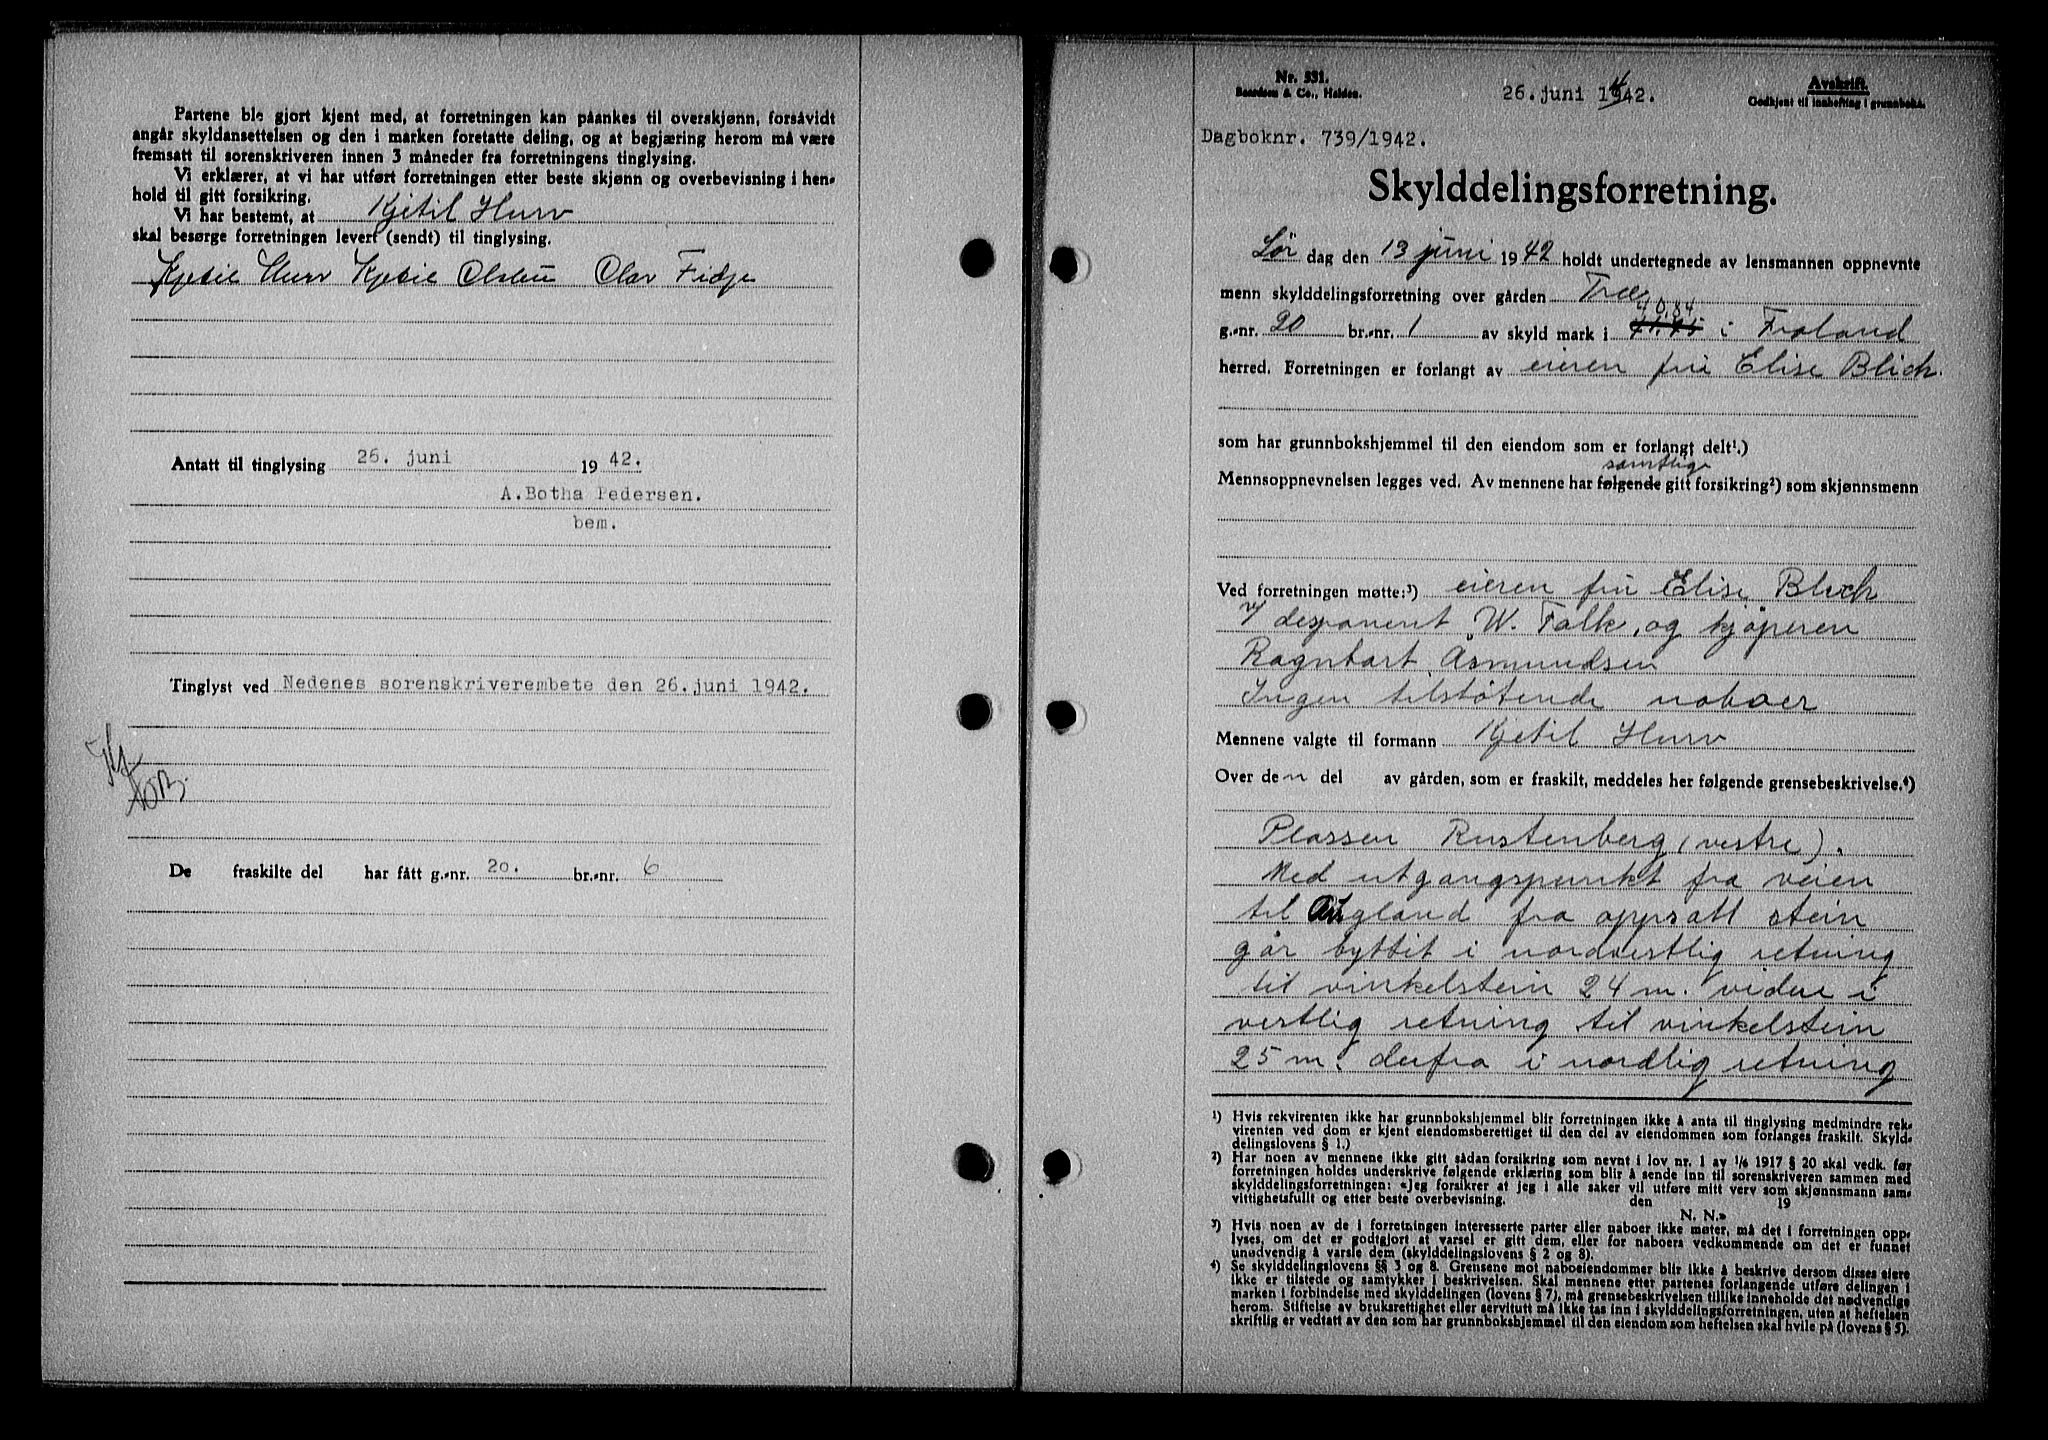 Partene ble gjort kjent med, at forretningen kan påankes til overskjønn, forsåvidt
angår skyldansettelsen og den i marken foretatte deling, og at begjæring herom må være
fremsatt til sorenskriveren innen 3 måneder fra forretningens tinglysing.
Vi erklærer, at vi har utført forretningen etter beste skjønn og overbevisning i hen-
hold til gitt forsikring.
Vi har bestemt, at Kjetil Hurv
skal besørge forretningen levert (sendt) til tinglysing.
Kjetil Hurv Kjetil Olsen Olav Fidje
Antatt til tinglysing 26. juni 1942.
A. Botha Pedersen.
bem.
Tinglyst ved Nedenes sorenskriverembete den 26. juni 1942.
De fraskilte del har fått g.-nr. 20. br.-nr. 6
Nr. 531.
26. juni 1942.
Avskrift.
Godkjent til innhefting i grunnboka.
Dagboknr. 739/1942.
Skylddelingsforretning.
Lør dag den 13 juni 1942 holdt undertegnede av lensmannen oppnevnte
menn skylddelingsforretning over gården Træ
40.84
g.-nr. 20 br.-nr. 1 av skyld mark i i Froland
herred. Forretningen er forlangt av eieren fru Elise Blich.
som har grunnbokshjemmel til den eiendom som er forlangt delt¹.)
samtlige
Mennsoppnevnelsen legges ved. Av mennene har følgende gitt forsikring²) som skjønnsmenn
Ved forretningen møtte:³) eieren fru Elise Blich
v/ desponent W. Falk, og kjøperen
Ragnhart Asmundsen
Ingen tilstøtende naboer
Mennene valgte til formann Kjetil Hurv
Over den del av gården, som er fraskilt, meddeles her følgende grensebeskrivelse.⁴)
Plassen Rustenberg (vestre).
Med utgangspunkt fra veien
til fra oppsatt stein
går byttit i nordvestlig retning
til vinkelstein 24 m. videre i
vestlig retning til vinkelstein
25 m. derfra i nordlig retning
¹) Hvis rekvirenten ikke har grunnbokshjemmel blir forretningen ikke å anta til tinglysing medmindre rek-
virenten ved dom er kjent eiendomsberettiget til den del av eiendommen som forlanges fraskilt. Skyld-
delingslovens § 1.)
²) Har noen av mennene ikke gitt sådan forsikring som nevnt i lov nr. 1 av 1/6 1917 § 20 skal vedk. før
forretningen holdes underskrive følgende erklæring som blir å sende inn til sorenskriveren sammen med
skylddelingsforretningen: «Jeg forsikrer at jeg i alle saker vil utføre mitt verv som skjønnsmann sam-
vittighetsfullt og etter beste overbevisning. den 19
N. N.»
³) Hvis noen av de i forretningen interesserte parter eller naboer ikke møter, må det i forretningen opp-
lyses, om det er godtgjort at varsel er gitt dem, eller for naboers vedkommende om det er funnet
unødvendig å varsle dem (skylddelingslovens § 2 og 8).
⁴) Se skylddelingslovens §§ 3 og 8. Grensene mot naboeiendommer blir ikke å beskrive dersom disses eiere
ikke er tilstede og samtykker i beskrivelsen. Skal mennene etter partenes forlangende utføre delingen i
marken i forbindelse med skylddelingen (lovens § 7), må grensebeskrivelsen tillike inneholde det nødvendige
herom. Stiftelse av bruksrettighet eller servitutt må ikke tas inn i skylddelingsforretningen, uten at heftelsen
skriftlig er vedtatt av den som har grunnbokshjemmel til den eiendom som heftelsen skal hvile på (lovens § 5).